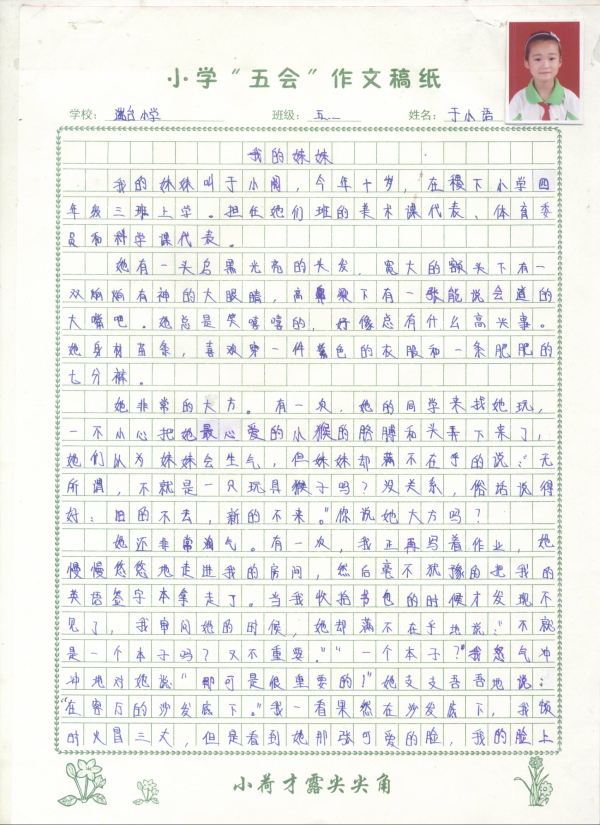 小学“五会”作文稿纸
学校： 小学 班级： 五.二 姓名： 于小语
我的妹妹
我的妹妹叫于小闻，今年十岁，在稷下小学四
年级三班上学。担任她们班的美术课代表、体育委
员和科学课代表。
她有一头乌黑光亮的头发，宽大的额头下有一
双炯炯有神的大眼睛，高鼻梁下有一张能说会道的
大嘴吧。她总是笑嘻嘻的，好像总有什么高兴事。
她身材苗条，喜欢穿一件着色的衣服和一条肥肥的
七分裤。
她非常的大方。有一次，她的同学来找她玩，
一不小心把她最心爱的小猴的胳膊和头弄下来了，
她们认为妹妹会生气，但妹妹却满不在乎的说：“无
所谓，不就是一只玩具猴子吗？没关系，俗话说得
好：旧的不去，新的不来。”你说她大方吗？
她还非常淘气。有一次，我正再写着作业，她
慢慢悠悠地走进我的房间，然后毫不犹豫的把我的
英语签字本拿走了。当我收拾书包的时候才发现不
见了，我审问她的时候，她却满不在乎地说：“不就
是一个本子吗？又不重要。”“一个本子？”我怒气冲
冲地对她说“那可是很重要的！”她支支吾吾地说：
“在客厅的沙发底下。”我一看果然在沙发底下，我顿
时火冒三丈，但是看到她那张可爱的脸，我的脸上
小荷才露尖尖角